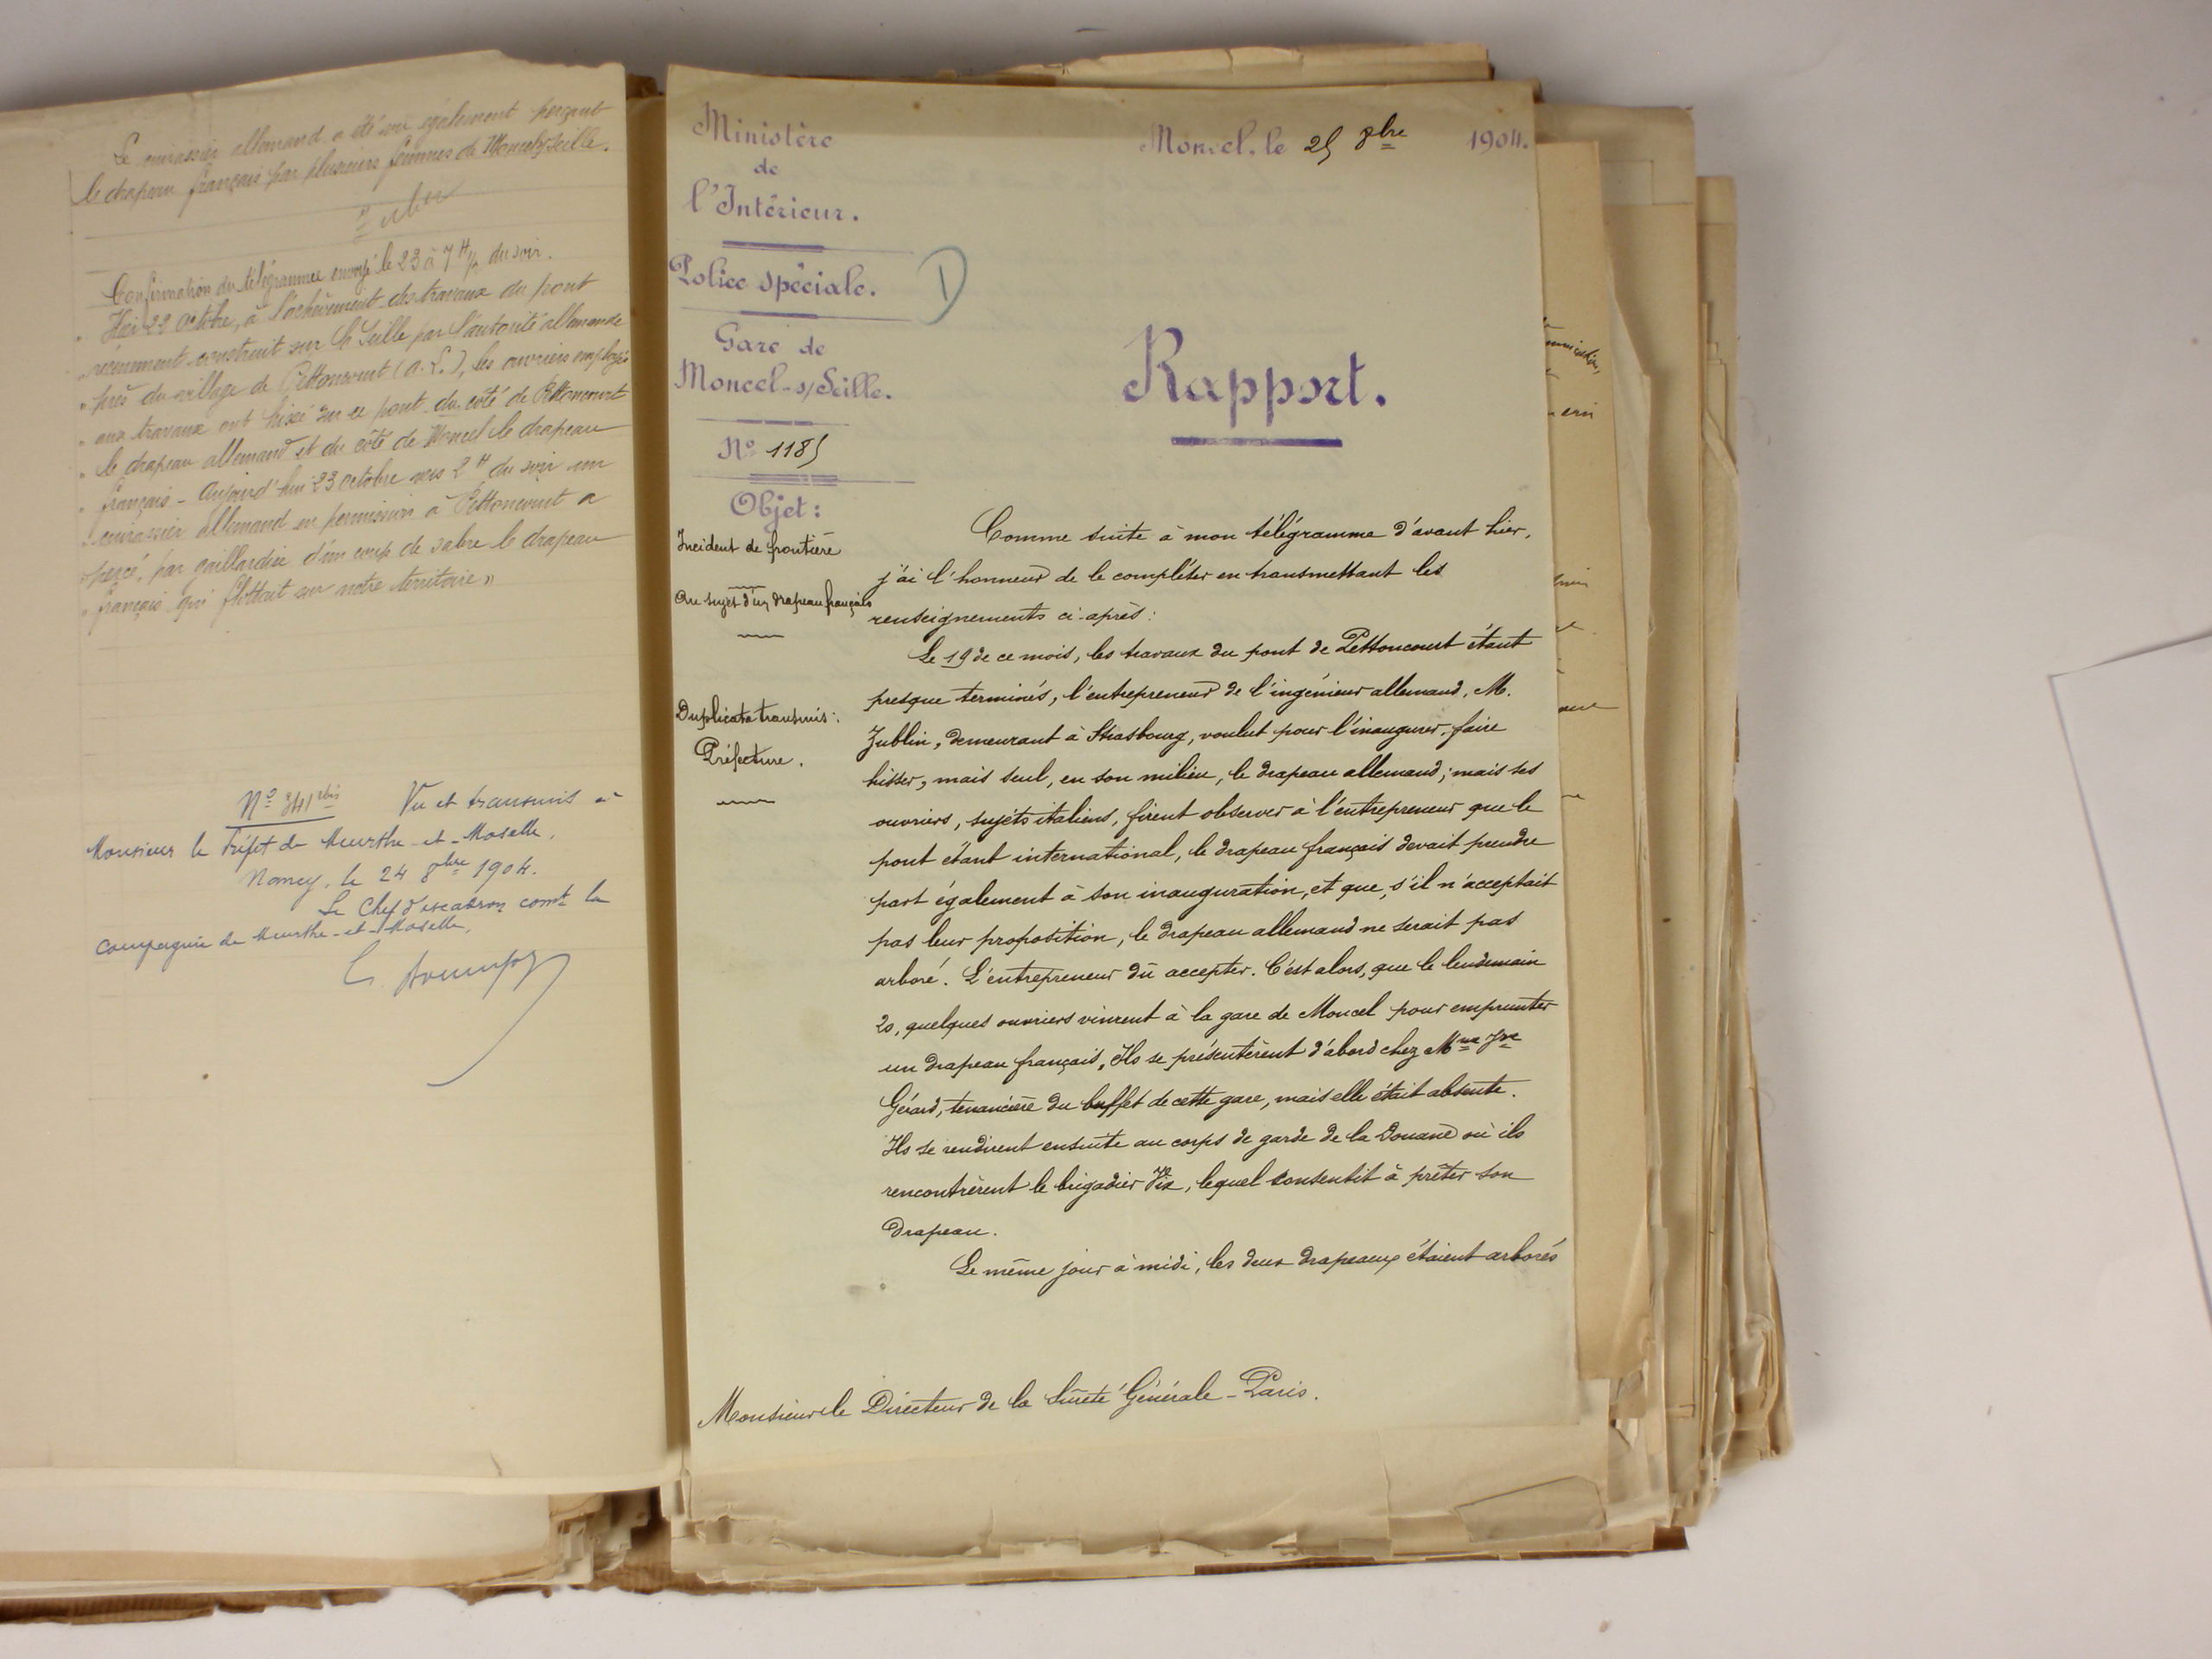 Le cuirassier allemand a été vu également perçant
le drapeau français par plusieurs femmes de Moncel s/ Seille.
Confirmation du télégramme envoyé le 23 à 7 H 1/2 du soir.
" Hier 22 Octobre, à l'achèvement des travaux du pont
" récemment construit sur la Seille par l'autorité allemande
" près du village de Pettoncourt (A. L.), les ouvriers employés
" aux travaux ont hissé sur ce pont du côté de Pettoncourt
" le drapeau allemand et du côté de Moncel le drapeau
" français - Aujourd'hui 23 octobre vers 2 H du soir un
" cuirassier allemand en permission à Pettoncourt a
" percé, par gaillardise d'un coup de sabre le drapeau
" français qui flottait sur notre territoire "
Nº 341 bis Vu et transmis à
Monsieur le Préfet de Meurthe-et-Moselle.
Nancy, le 24 8bre 1904.
Le Chef d'escadron comt la
compagnie de Meurthe-et-Moselle,
Ministère
de
l'Intérieur.
Police spéciale.
Gare de
Moncel-s/Seille.
Nº 1185
Objet:
Incident de frontière
Au sujet d'un drapeau français
Duplicata transmis:
Préfecture.
1)
Moncel, le 25 8bre 1904.
Rapport.
Comme suite à mon télégramme d'avant hier,
j'ai l'honneur de le compléter en transmettant les
renseignements ci-après:
Le 19 de ce mois, les travaux du pont de Pettoncourt étant
presque terminés, l'entrepreneur de l'ingénieur allemand, M.
Zublin, demeurant à Strasbourg, voulut pour l'inaugurer, faire
hisser, mais seul, en son milieu, le drapeau allemand; mais ses
ouvriers, sujets italiens, firent observer à l'entrepreneur que le
pont étant international, le drapeau français devait prendre
part également à son inauguration, et que, s'il n'acceptait
pas leur proposition, le drapeau allemand ne serait pas
arboré. L'entrepreneur dû accepter. C'est alors, que le lendemain
20, quelques ouvriers vinrent à la gare de Moncel pour emprunter
un drapeau français. Ils se présentèrent d'abord chez Mme Vve
Gérard, tenancière du buffet de cette gare, mais elle était absente.
Ils se rendirent ensuite au corps de garde de la Douane où ils
rencontrèrent le brigadier Vix, lequel consentit à prêter son
drapeau.
Le même jour à midi, les deux drapeaux étaient arborés
Monsieur le Directeur de la Sûreté Générale - Paris.